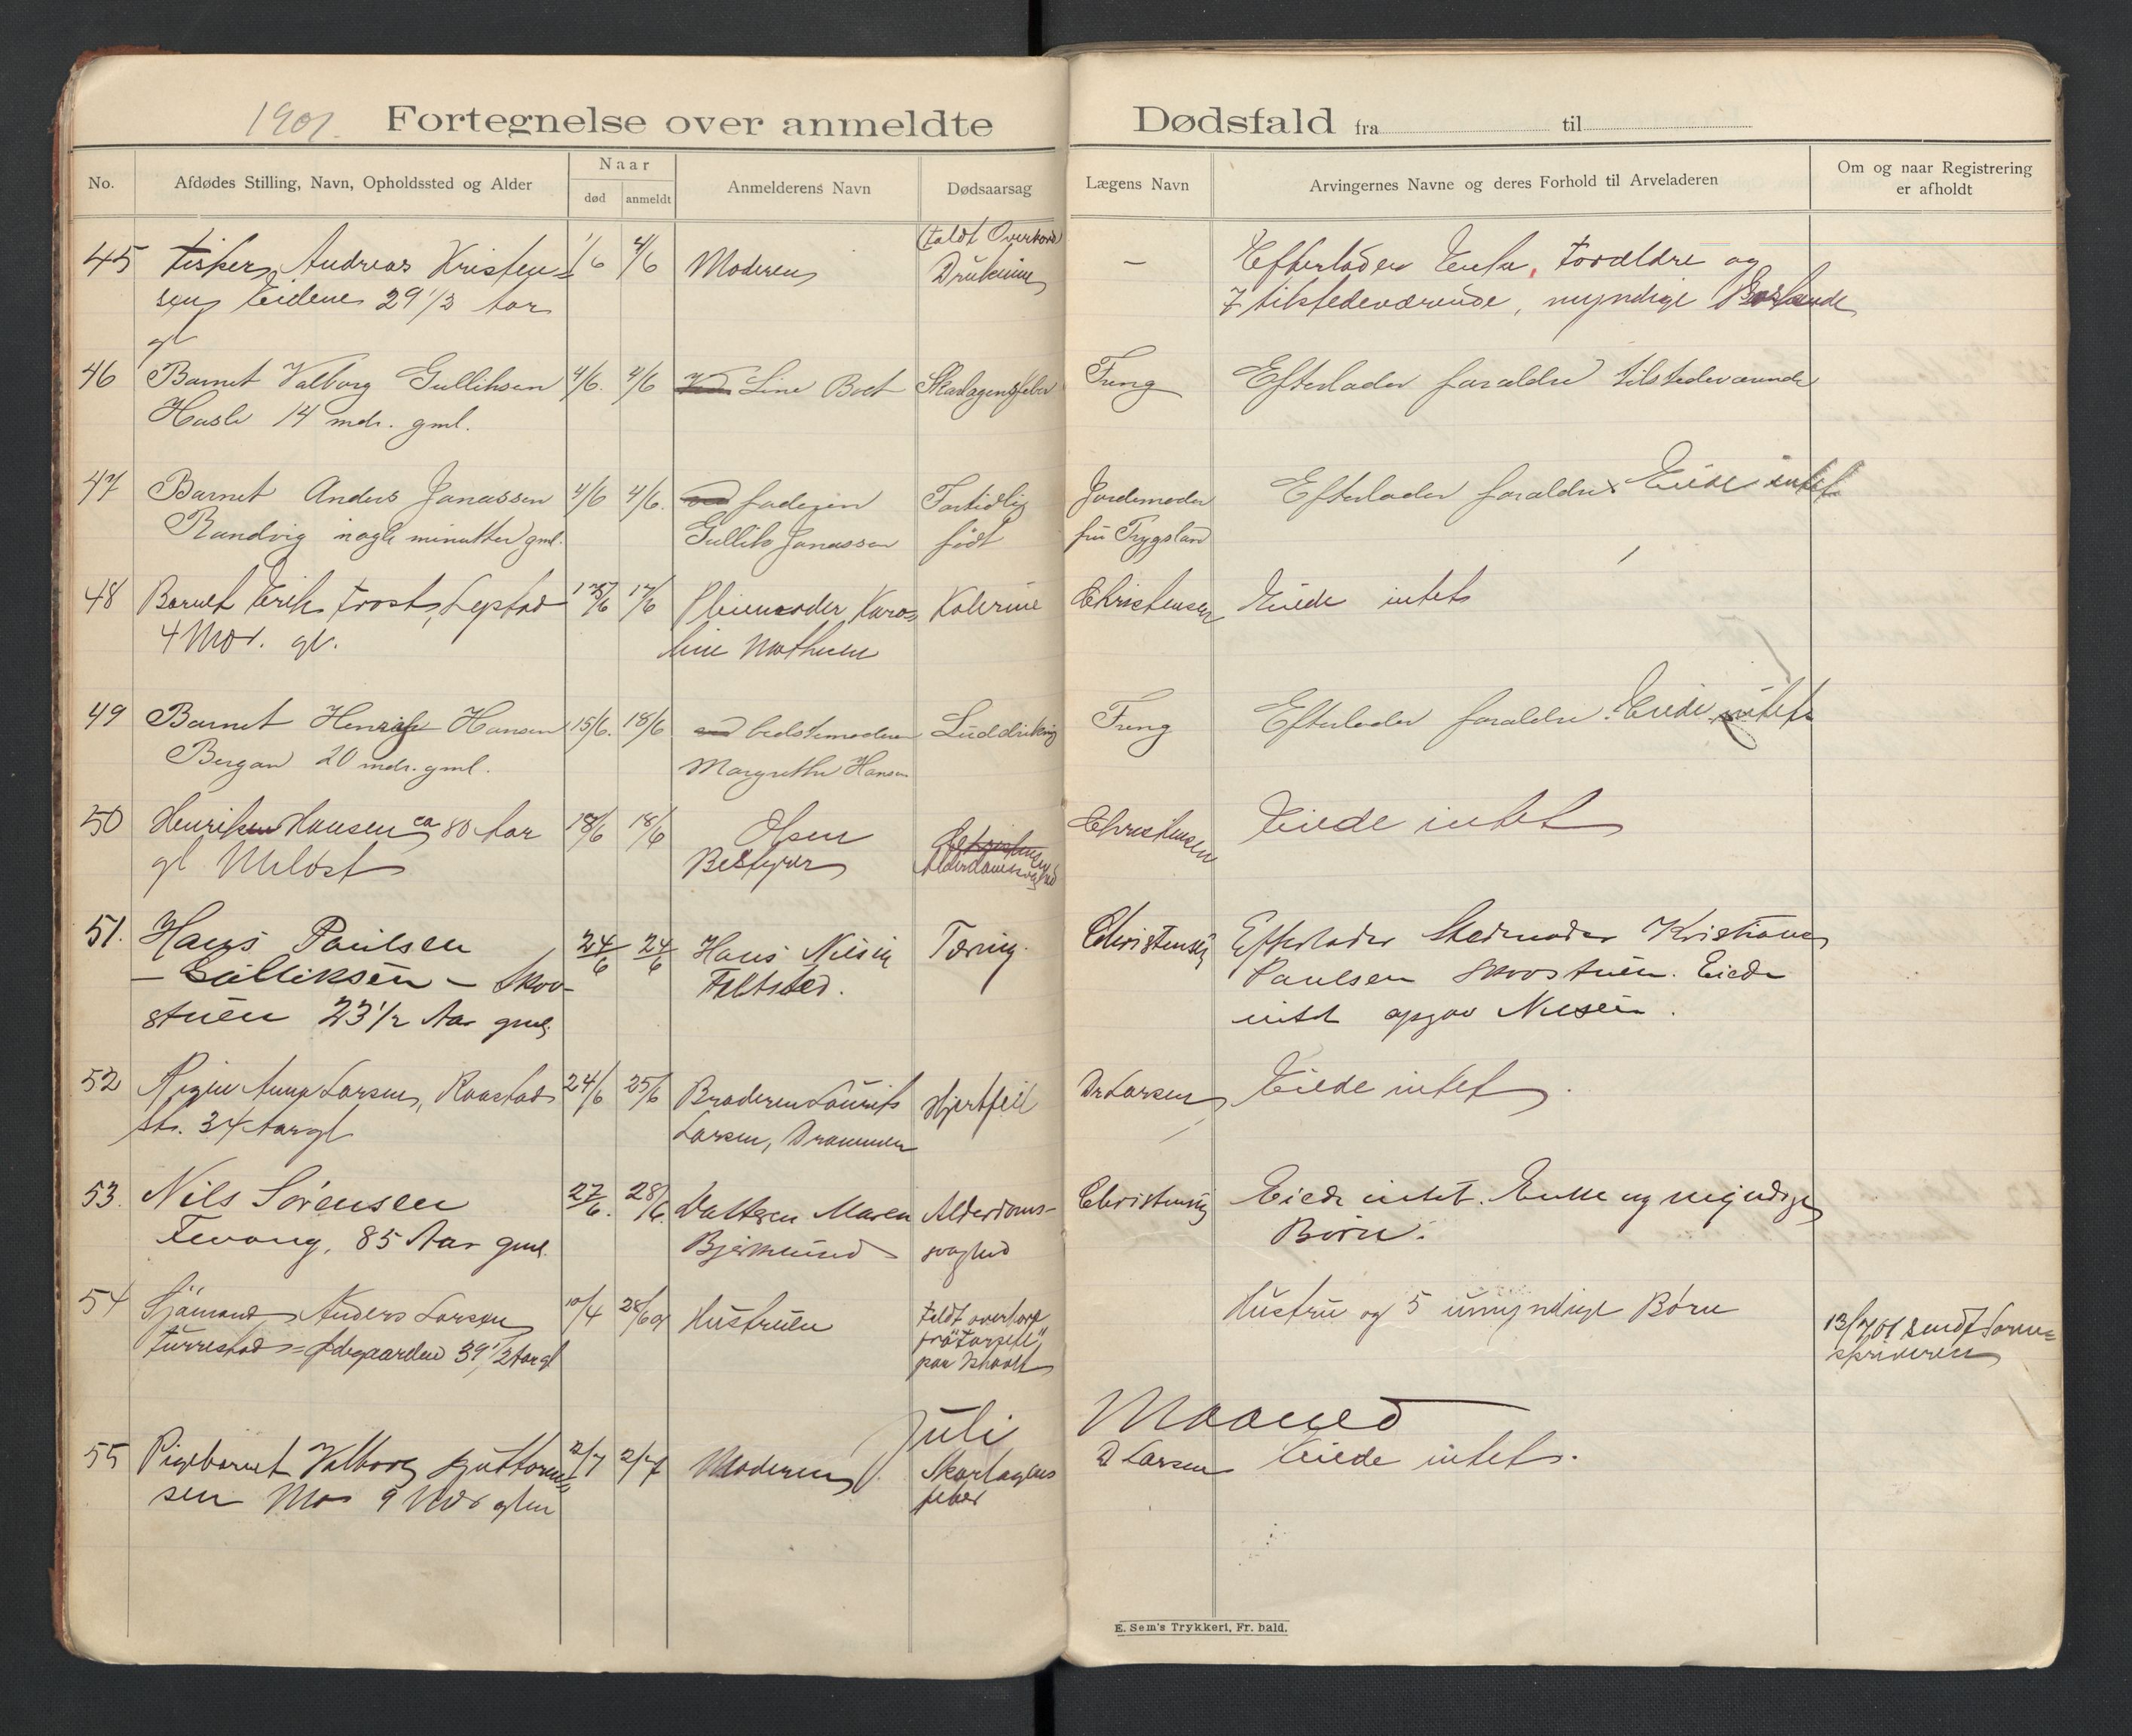 1901. Fortegnelse over anmeldte Dødsfald fra til
No. Afdødes Stilling, Navn, Opholdssted og Alder Naar død anmeldt Anmelderens Navn Dødsaarsag Lægens Navn Arvingernes Navne og deres Forhold til Arveladeren Om og naar Registrering er afholdt
(faldt Overbord)
45 Fisker Andreas Kristen= 1/6 4/6 Moderen — Efterlader Enke, Forældre og
sen Eidene 29 1/3 Aar 7 tilstedeværende, myndige
gl
46 Barnet Valborg Gulliksen 4/6. 4/6 Line Boet Skarlagensfeber Efterlader forældre tilstedeværende
14 mdr. gml.
47 Barnet Anders Janassen 4/6 4/6. faderen Fortidlig Jordemoder Efterlader forældre Eiede intet
Randvig nogle minutter gml. Gullik Janassen født
48 Barnet Erik Frost, 17/6 Pleiemoder Karo= Kolerine Christensen Eiede intet
4 Mdr. gl. line Mathesen
49 Barnet Hansen 15/6. 18/6 bedstemoderen Efterlader forældre. Eiede intet
Bergan 20 mdr. gml. Margrethe Hansen
50 Henrik Hansen ca 80 Aar 18/6 18/6 Olsen Christensen Eiede intet
gl Bestyrer Alderdomssvaghed
51. Hans Paulsen 24/6 24/6 Hans Nilsen Tæring. Christensen Efterlader Stedmoder Kristiane
— Gulliksen — Skov- Paulsen Skovstuen. Eiede
stuen 23 1/2 Aar gml. intet opgav Nilsen.
52 Anna Larsen, Raastad 24/6 25/6 Broderen Laurits Hjertfeil Dr Larsen Eiede intet.
34 Aar gl Larsen, Drammen
53. Nils Sørensen 27/6. 28/6. Datteren Maren Alderdoms- Christensen Eiede intet. Enke og myndige
Fevang, 85 Aar gml. svaghed Børn.
54 Sjømand Anders Larsen 10/4 28/6 01 Hustruen faldt overbord Hustru og 5 umyndige Børn 13/7 01 sendt Soren=
Furrestad = Ødegaarden 39 1/2 Aar gl fra skriveren
Juli Maaned
55 Pigebarnet Valborg Guttorm= 2/7 2/7 Moderen Skarlagens D Larsen Eiede intet.
sen Mo 9 Mdr feber
E. Sem's Trykkeri, Fr. hald.